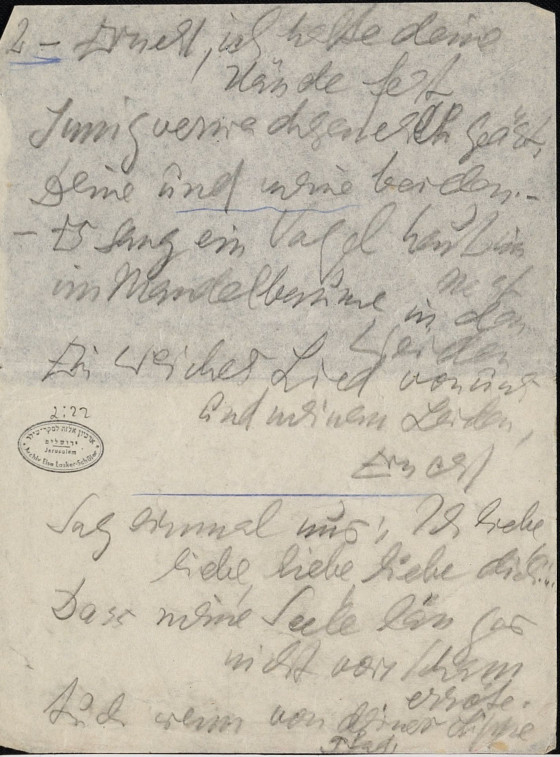 2 – Ernest, ich halte deine
Hände fest
Innigverwachsene
Deine und meine beiden. –
– Es sang ein Vogel heut im
im Mandelbaume in den
Weiden
Ein weiches Lied von uns
und meinem Leiden,
Ernest
Sag einmal nur: Ich liebe,
liebe, liebe liebe dich...
Dass meine Seele länger
nicht vor Scham
erröte.
Auch wenn von deiner Lippe
2:22
ירושלים
Jerusalem
Archiv Else Lasker-Schüler